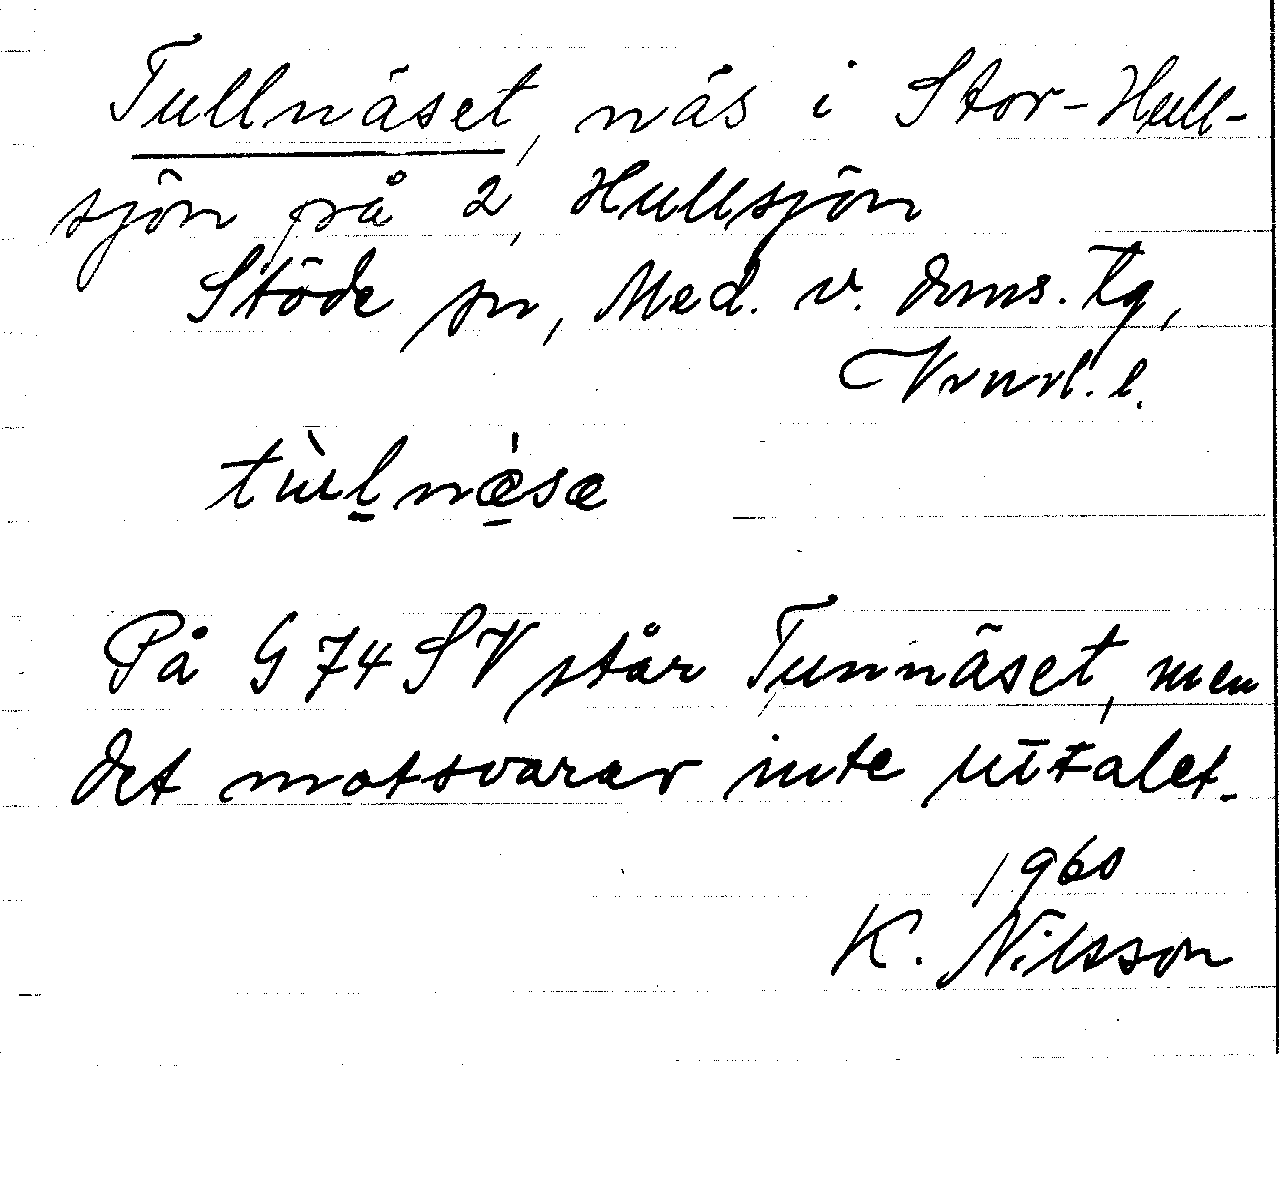 Tullnäset, näs i Stor-Hull-
sjön på 2, Hullsjön
Stöde sn, Med. v. doms. tg,
Vrnrl. l.
tùl̠næ̠̀sæ
På G 74 SV står Tunnäset, men
det motsvarar inte uttalet.
1960
K. Nilsson